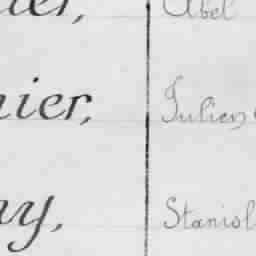 ier, Abel
nier, Julien
ny, Stanisl